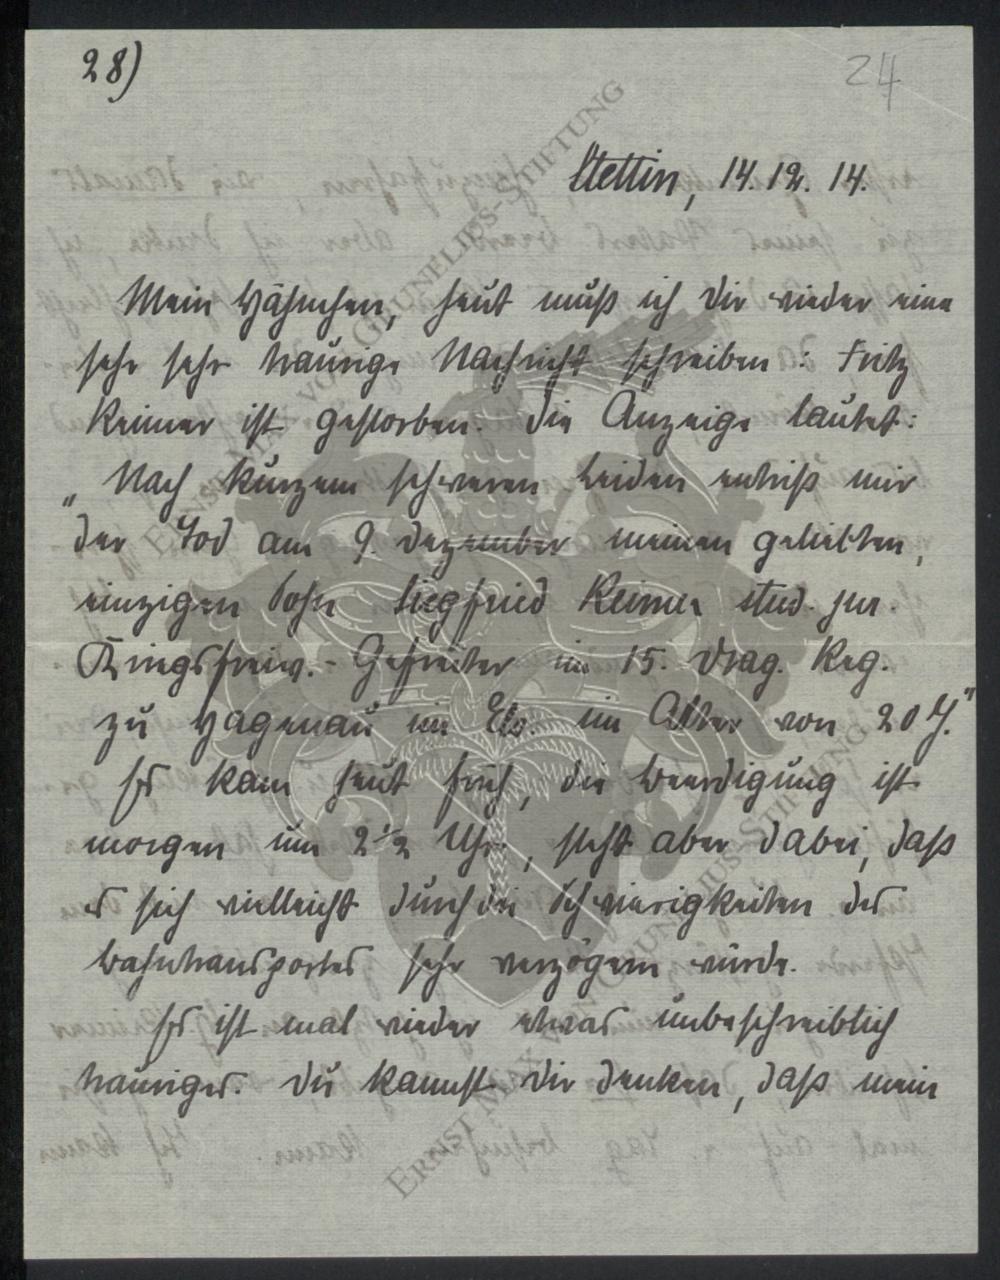 28)
24
Stettin, 14.12.14.
Mein Hähnchen, heut muß ich Dir wieder eine
sehr sehr traurige Nachricht schreiben: Fritz
Reimer ist gestorben. Die Anzeige lautet:
„Nach kurzem schweren Leiden entriß mir
der Tod am 9. Dezember meinen geliebten,
einzigen Sohn Siegfried Reimer stud. jur.
Kriegsfreiw.-Gefreiter im 15. Drag. Reg.
zu Hagenau im Els. im Alter von 20 J."
Es kam heut früh, die Beerdigung ist
morgen um 2½ Uhr, steht aber dabei, daß
es sich vielleicht durch die Schwierigkeiten des
Bahntransportes sehr verzögern würde.
Es ist mal wieder etwas unbeschreiblich
trauriges. Du kannst Dir denken, daß mein
ERNST MAX VON GRUNELIUS-STIFTUNG
ERNST MAX VON GRUNELIUS-STIFTUNG